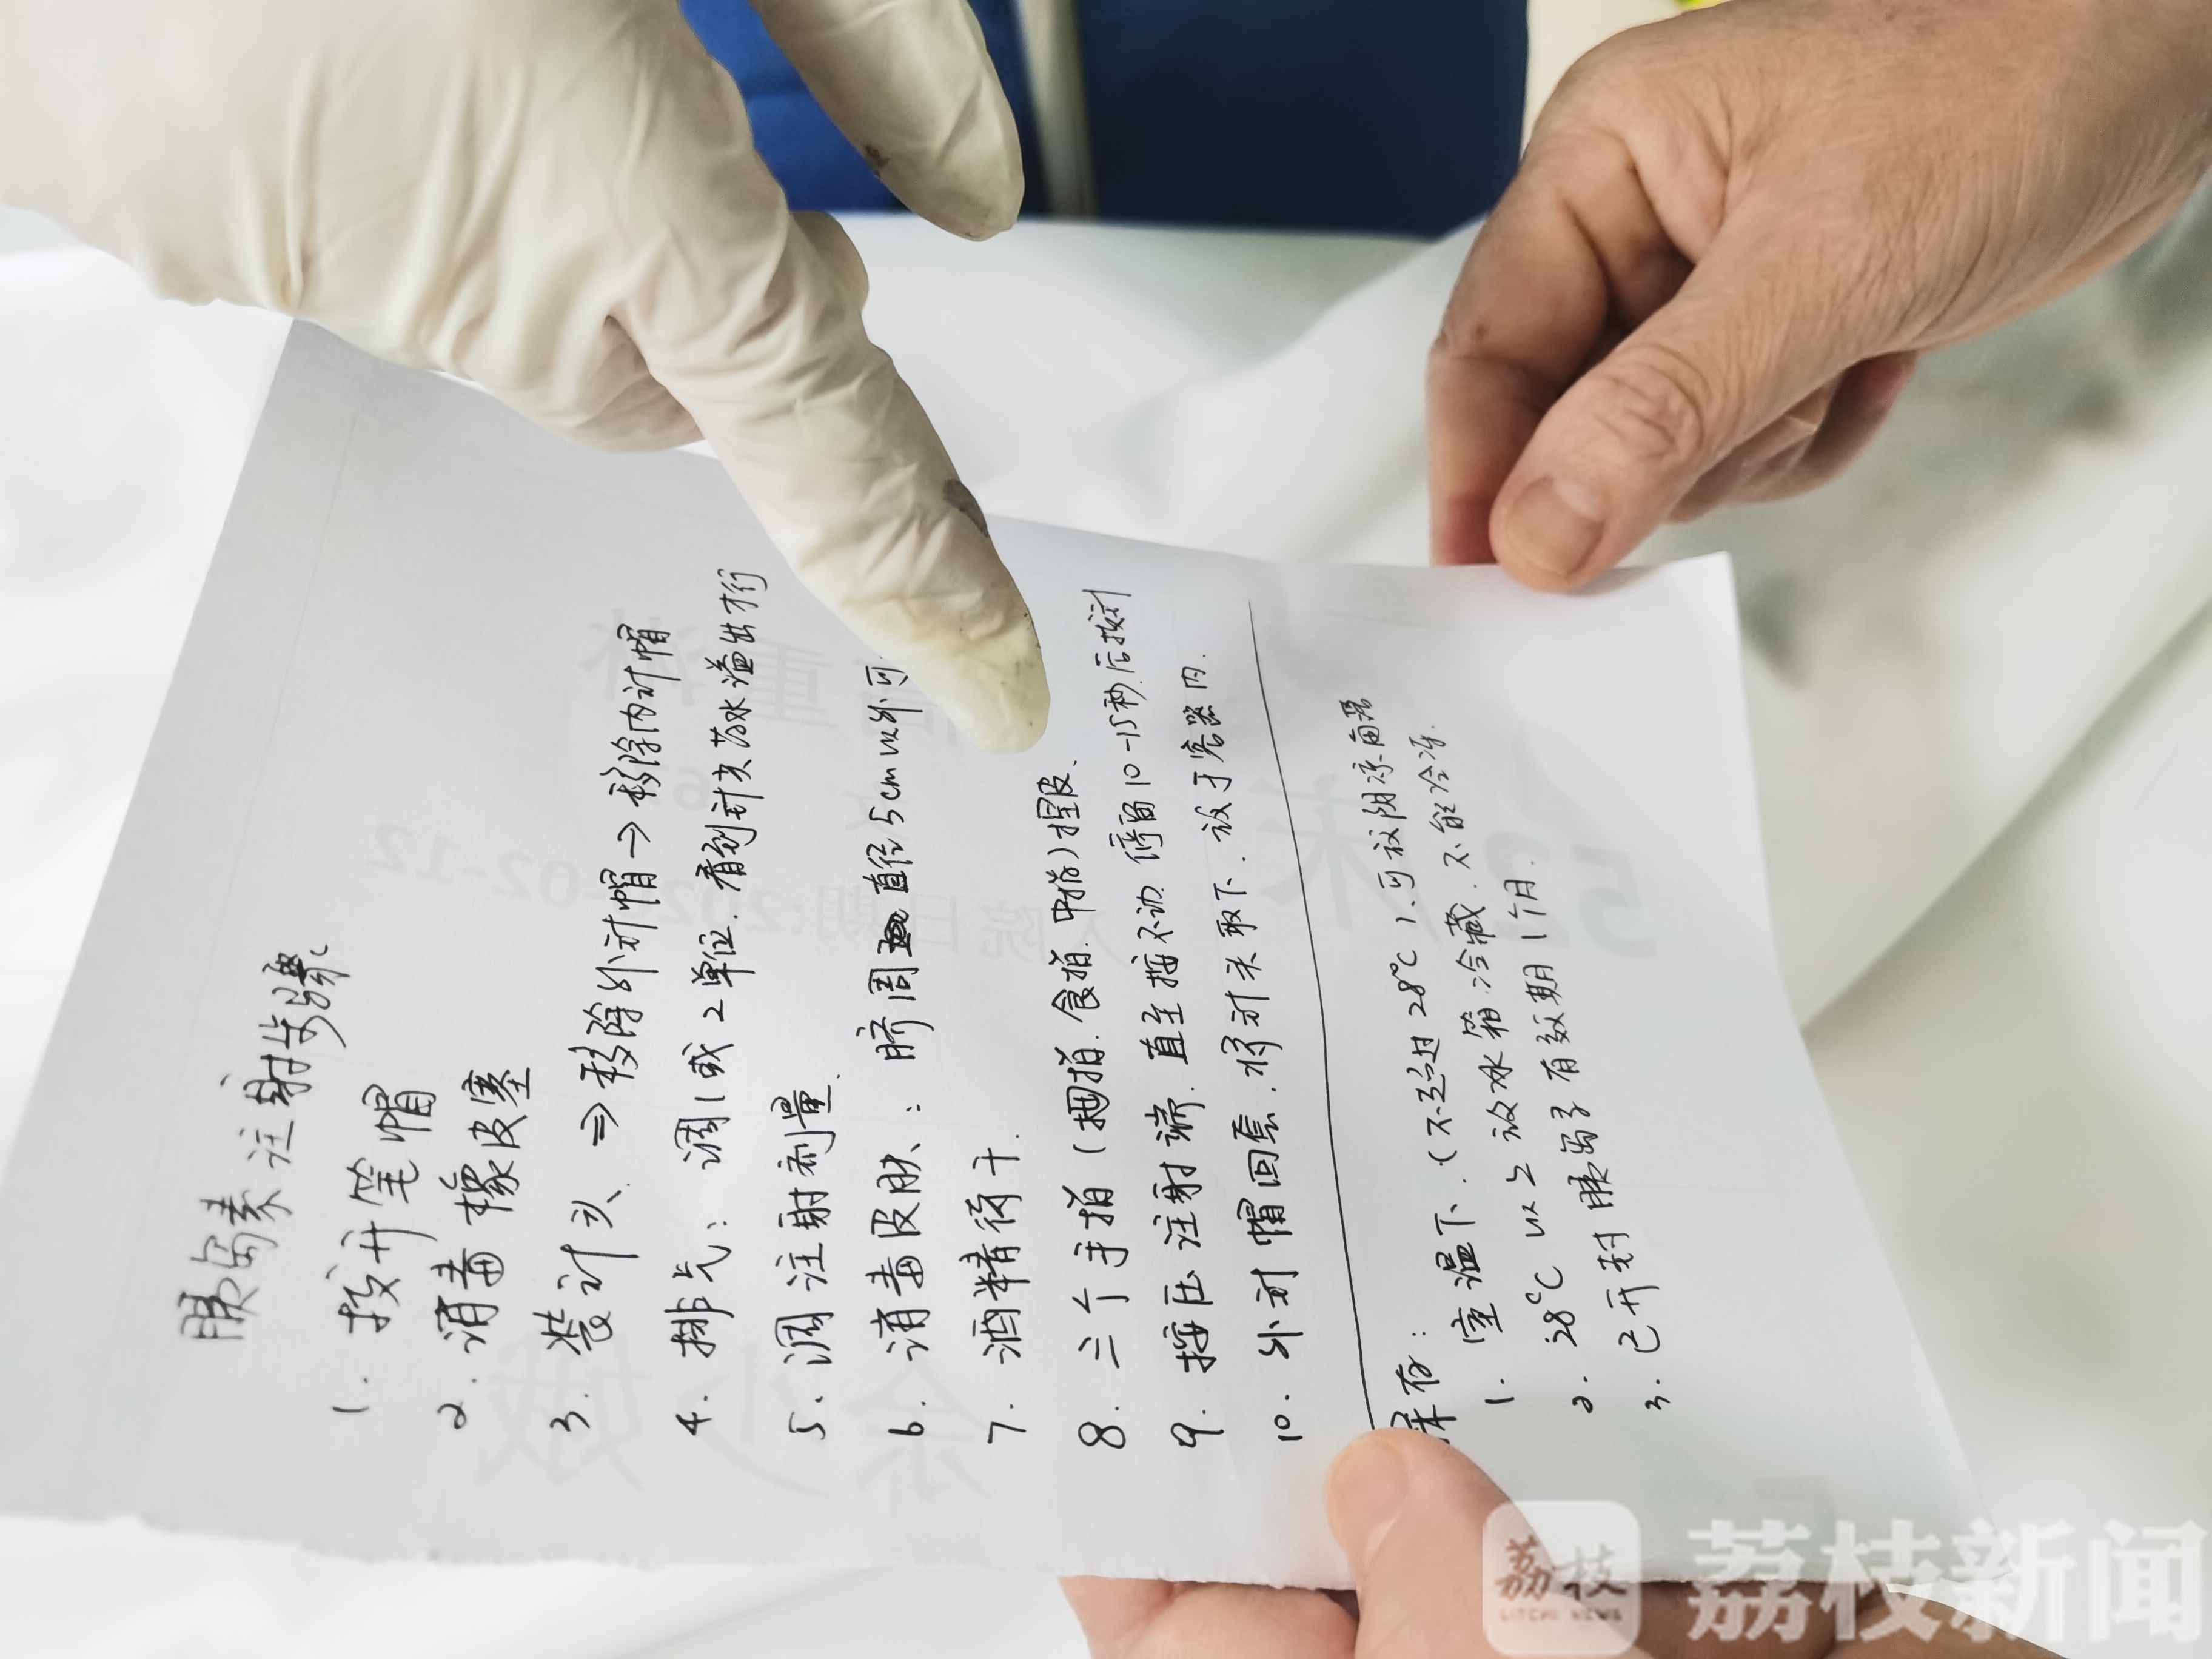 胰岛素注射步骤:
1. 拔开笔帽
2. 消毒橡皮塞
3. 装针头 ⇒移除外针帽→移除内针帽
4. 排气: 调1或2单位.看到针头药水溢出才行
5. 调注射剂量.
6. 消毒皮肤: 脐周 直径5cm以外可
7. 酒精待干.
8. 三个手指(拇指.食指.中指)捏皮、
9. 按压注射端.直至按不动.停留10-15秒后拔针
10. 外针帽回套.将针头取下.放于容器内.
保存:
1. 室温下.(不超过28℃).可放阴凉
2. 28℃以上放冰箱冷藏.不能冷冻.
3. 已开封胰岛素有效期1个月.
52床
入院日期:202-02-12
余少娥
荔枝
LITCHI NEWS
荔枝新闻